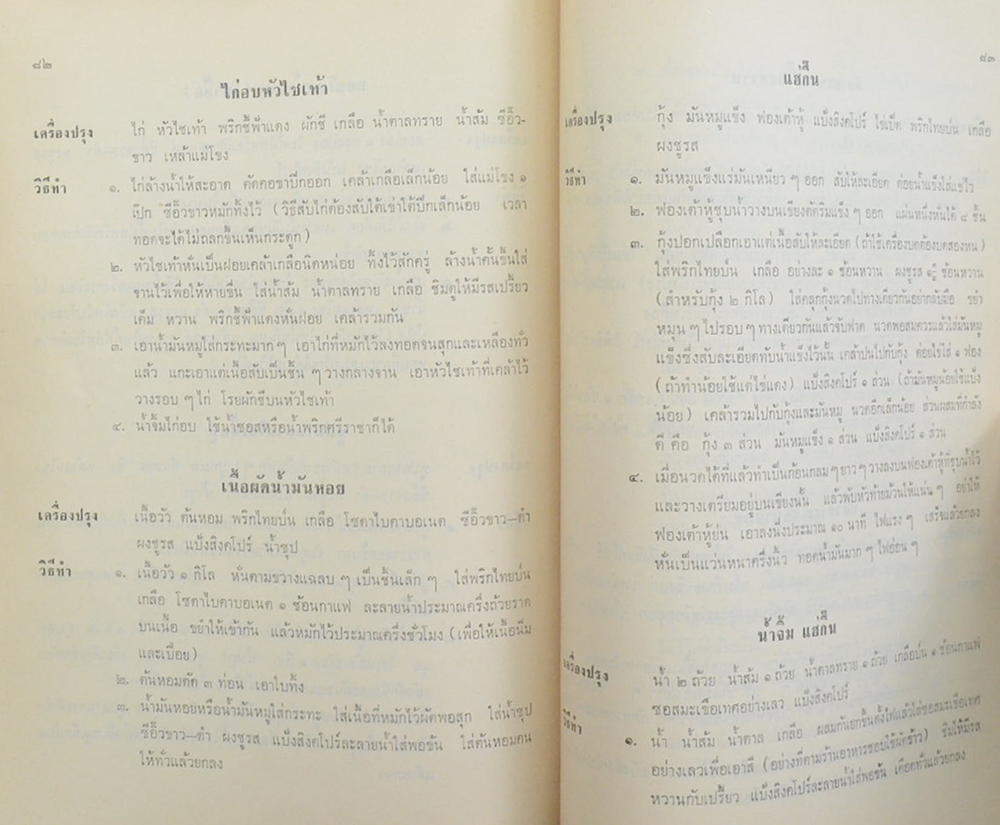 ๘๒
ไก่อบหัวไชเท้า
เครื่องปรุง ไก่ หัวไชเท้า พริกชี้ฟ้าแดง ผักชี เกลือ น้ำตาลทราย น้ำส้ม ซีอิ๊ว-
ขาว เหล้าแม่โขง
วิธีทำ ๑. ไก่ล้างน้ำให้สะอาด ตัดคอขาปีกออก เคล้าเกลือเล็กน้อย ใส่แม่โขง ๑
เป๊ก ซีอิ๊วขาวหมักทิ้งไว้ (วิธีสับไก่ต้องสับใต้เข่าใต้ปีกเล็กน้อย เวลา
ทอดจะได้ไม่ถลกขึ้นเห็นกระดูก)
๒. หัวไชเท้าหั่นเป็นฝอยเคล้าเกลือนิดหน่อย ทิ้งไว้สักครู่ ล้างน้ำคั้นขึ้นใส่
ชามไว้เพื่อให้หายขื่น ใส่น้ำส้ม น้ำตาลทราย เกลือ ชิมดูให้มีรสเปรี้ยว
เค็ม หวาน พริกชี้ฟ้าแดงหั่นฝอย เคล้ารวมกัน
๓. เอาน้ำมันหมูใส่กระทะมากๆ เอาไก่ที่หมักไว้ลงทอดจนสุกและเหลืองทั่ว
แล้ว แกะเอาแต่เนื้อสับเป็นชิ้น ๆ วางกลางจาน เอาหัวไชเท้าที่เคล้าไว้
วางรอบ ๆ ไก่ โรยผักชีบนหัวไชเท้า
๔. น้ำจิ้มไก่อบ ใช้น้ำซอสหรือน้ำพริกศรีราชาก็ได้
เนื้อผัดน้ำมันหอย
เครื่องปรุง เนื้อวัว ต้นหอม พริกไทยป่น เกลือ โซดาไบคาบอเนต ซีอิ๊วขาว–ดำ
ผงชูรส แป้งสิงคโปร์ น้ำซุป
วิธีทำ ๑. เนื้อวัว ๑ กิโล หั่นตามขวางแฉลบ ๆ เป็นชิ้นเล็ก ๆ ใส่พริกไทยป่น
เกลือ โซดาไบคาบอเนต ๑ ช้อนกาแฟ ละลายน้ำประมาณครึ่งถ้วยราด
บนเนื้อ ขยำให้เข้ากัน แล้วหมักไว้ประมาณครึ่งชั่วโมง (เพื่อให้เนื้อนิ่ม
และเปื่อย)
๒. ต้นหอมตัด ๓ ท่อน เอาใบทิ้ง
๓. น้ำมันหอยหรือน้ำมันหมูใส่กระทะ ใส่เนื้อที่หมักไว้ผัดพอสุก ใส่น้ำซุป
ซีอิ๊วขาว–ดำ ผงชูรส แป้งสิงคโปร์ละลายน้ำใส่พอข้น ใส่ต้นหอมคน
ให้ทั่วแล้วยกลง
๘๓
แฮ่กึ๊น
เครื่องปรุง กุ้ง มันหมูแข็ง ฟองเต้าหู้ แป้งสิงคโปร์ ไข่เป็ด พริกไทยป่น เกลือ
ผงชูรส
วิธีทำ ๑. มันหมูแข็งแร่มันเหนียว ๆ ออก สับให้ละเอียด ต่อยน้ำแข็งใส่แช่ไว้
๒. ฟองเต้าหู้ชุบน้ำวางบนเขียงตัดริมแข็ง ๆ ออก แผ่นหนึ่งหั่นได้ ๘ ชิ้น
๓. กุ้งปอกเปลือกเอาแต่เนื้อสับให้ละเอียด (ถ้าใช้เครื่องบดต้องบดสองหน)
ใส่พริกไทยป่น เกลือ อย่างละ ๑ ช้อนหวาน ผงชูรส ช้อนหวาน
(สำหรับกุ้ง ๒ กิโล) ใส่คลุกกุ้งนวดไปทางเดียวกันอย่ากลับมือ ขยำ
หมุน ๆ ไปรอบ ๆ ทางเดียวกันแล้วจับฟาด นวดพอสมควรแล้วใส่มันหมู
แข็งซึ่งสับละเอียดทับน้ำแข็งไว้นั้น เคล้าปนไปกับกุ้ง ต่อยไข่ใส่ ๑ ฟอง
(ถ้าทำน้อยใช้แต่ไข่แดง) แป้งสิงคโปร์ ๑ ส่วน (ถ้ามันหมูน้อยใช้แป้ง
น้อย) เคล้ารวมไปกับกุ้งและมันหมู นวดอีกเล็กน้อย ส่วนผสมที่กำลัง
ดี คือ กุ้ง ๓ ส่วน มันหมูแข็ง ๑ ส่วน แป้งสิงคโปร์ ๑ ส่วน
๔. เมื่อนวดได้ที่แล้วทำเป็นก้อนกลมๆ ยาวๆ วางลงบนฟองเต้าหู้ที่ชุบน้ำไว้
และวางเตรียมอยู่บนเขียงนั้น แล้วพับหัวท้ายม้วนให้แน่นๆ อย่าให้
ฟองเต้าหู้ย่น เอาลงนึ่งประมาณ ๑๐ นาที ไฟแรง ๆ เสร็จแล้วยกลง
หั่นเป็นแว่นหนาครึ่งนิ้ว ทอดน้ำมันมากๆ ไฟอ่อน ๆ
น้ำจิ้ม แฮ่กึ๊น
เครื่องปรุง น้ำ ๒ ถ้วย น้ำส้ม ๑ ถ้วย น้ำตาลทราย ๑ ถ้วย เกลือป่น ๑ ช้อนกาแฟ
ซอสมะเขือเทศอย่างเลว แป้งสิงคโปร์
วิธีทำ ๑. น้ำ น้ำส้ม น้ำตาล เกลือ ผสมกันยกขึ้นตั้งไฟแล้วใส่ซอสมะเขือเทศ
อย่างเลวเพื่อเอาสี (อย่างที่ตามร้านอาหารชอบใช้ผัดข้าว) ชิมให้มีรส
หวานกับเปรี้ยว แป้งสิงคโปร์ละลายน้ำใส่พอข้น เดือดทั่วแล้วยกลง